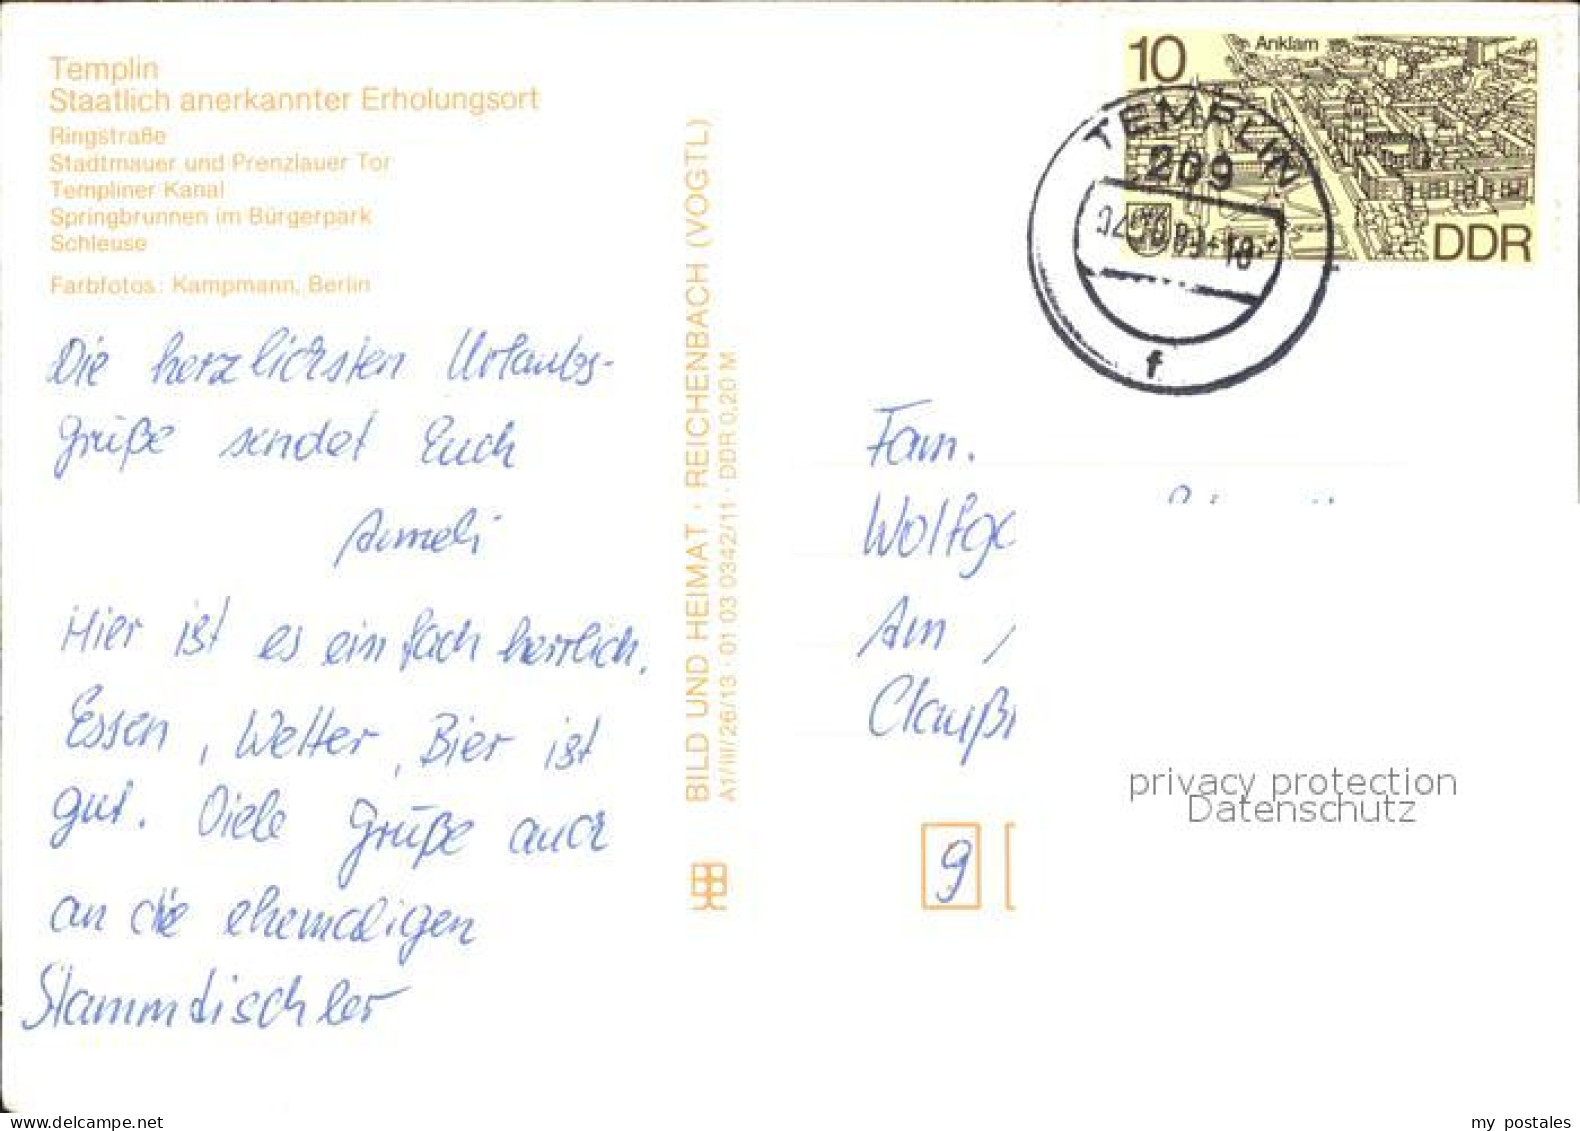 Templin
Staatlich anerkannter Erholungsort
Ringstraße
Stadtmauer und Prenzlauer Tor
Templiner Kanal
Springbrunnen im Bürgerpark
Schleuse
Farbfotos: Kampmann, Berlin
Die herzlichsten Urlaubs-
grüße sendet Euch
Anneli
Hier ist es einfach herrlich.
Essen, Wetter, Bier ist
gut. Viele Grüße auch
an die ehemaligen
Stammtischler
BILD UND HEIMAT · REICHENBACH (VOGTL)
A1/III/26/13 · 01 03 0342/11 · DDR 0,20 M
10
Anklam
DDR
TEMPLIN
209
f
Fam.
Wolfga
Am
Claußn
privacy protection
Datenschutz
9
my postales